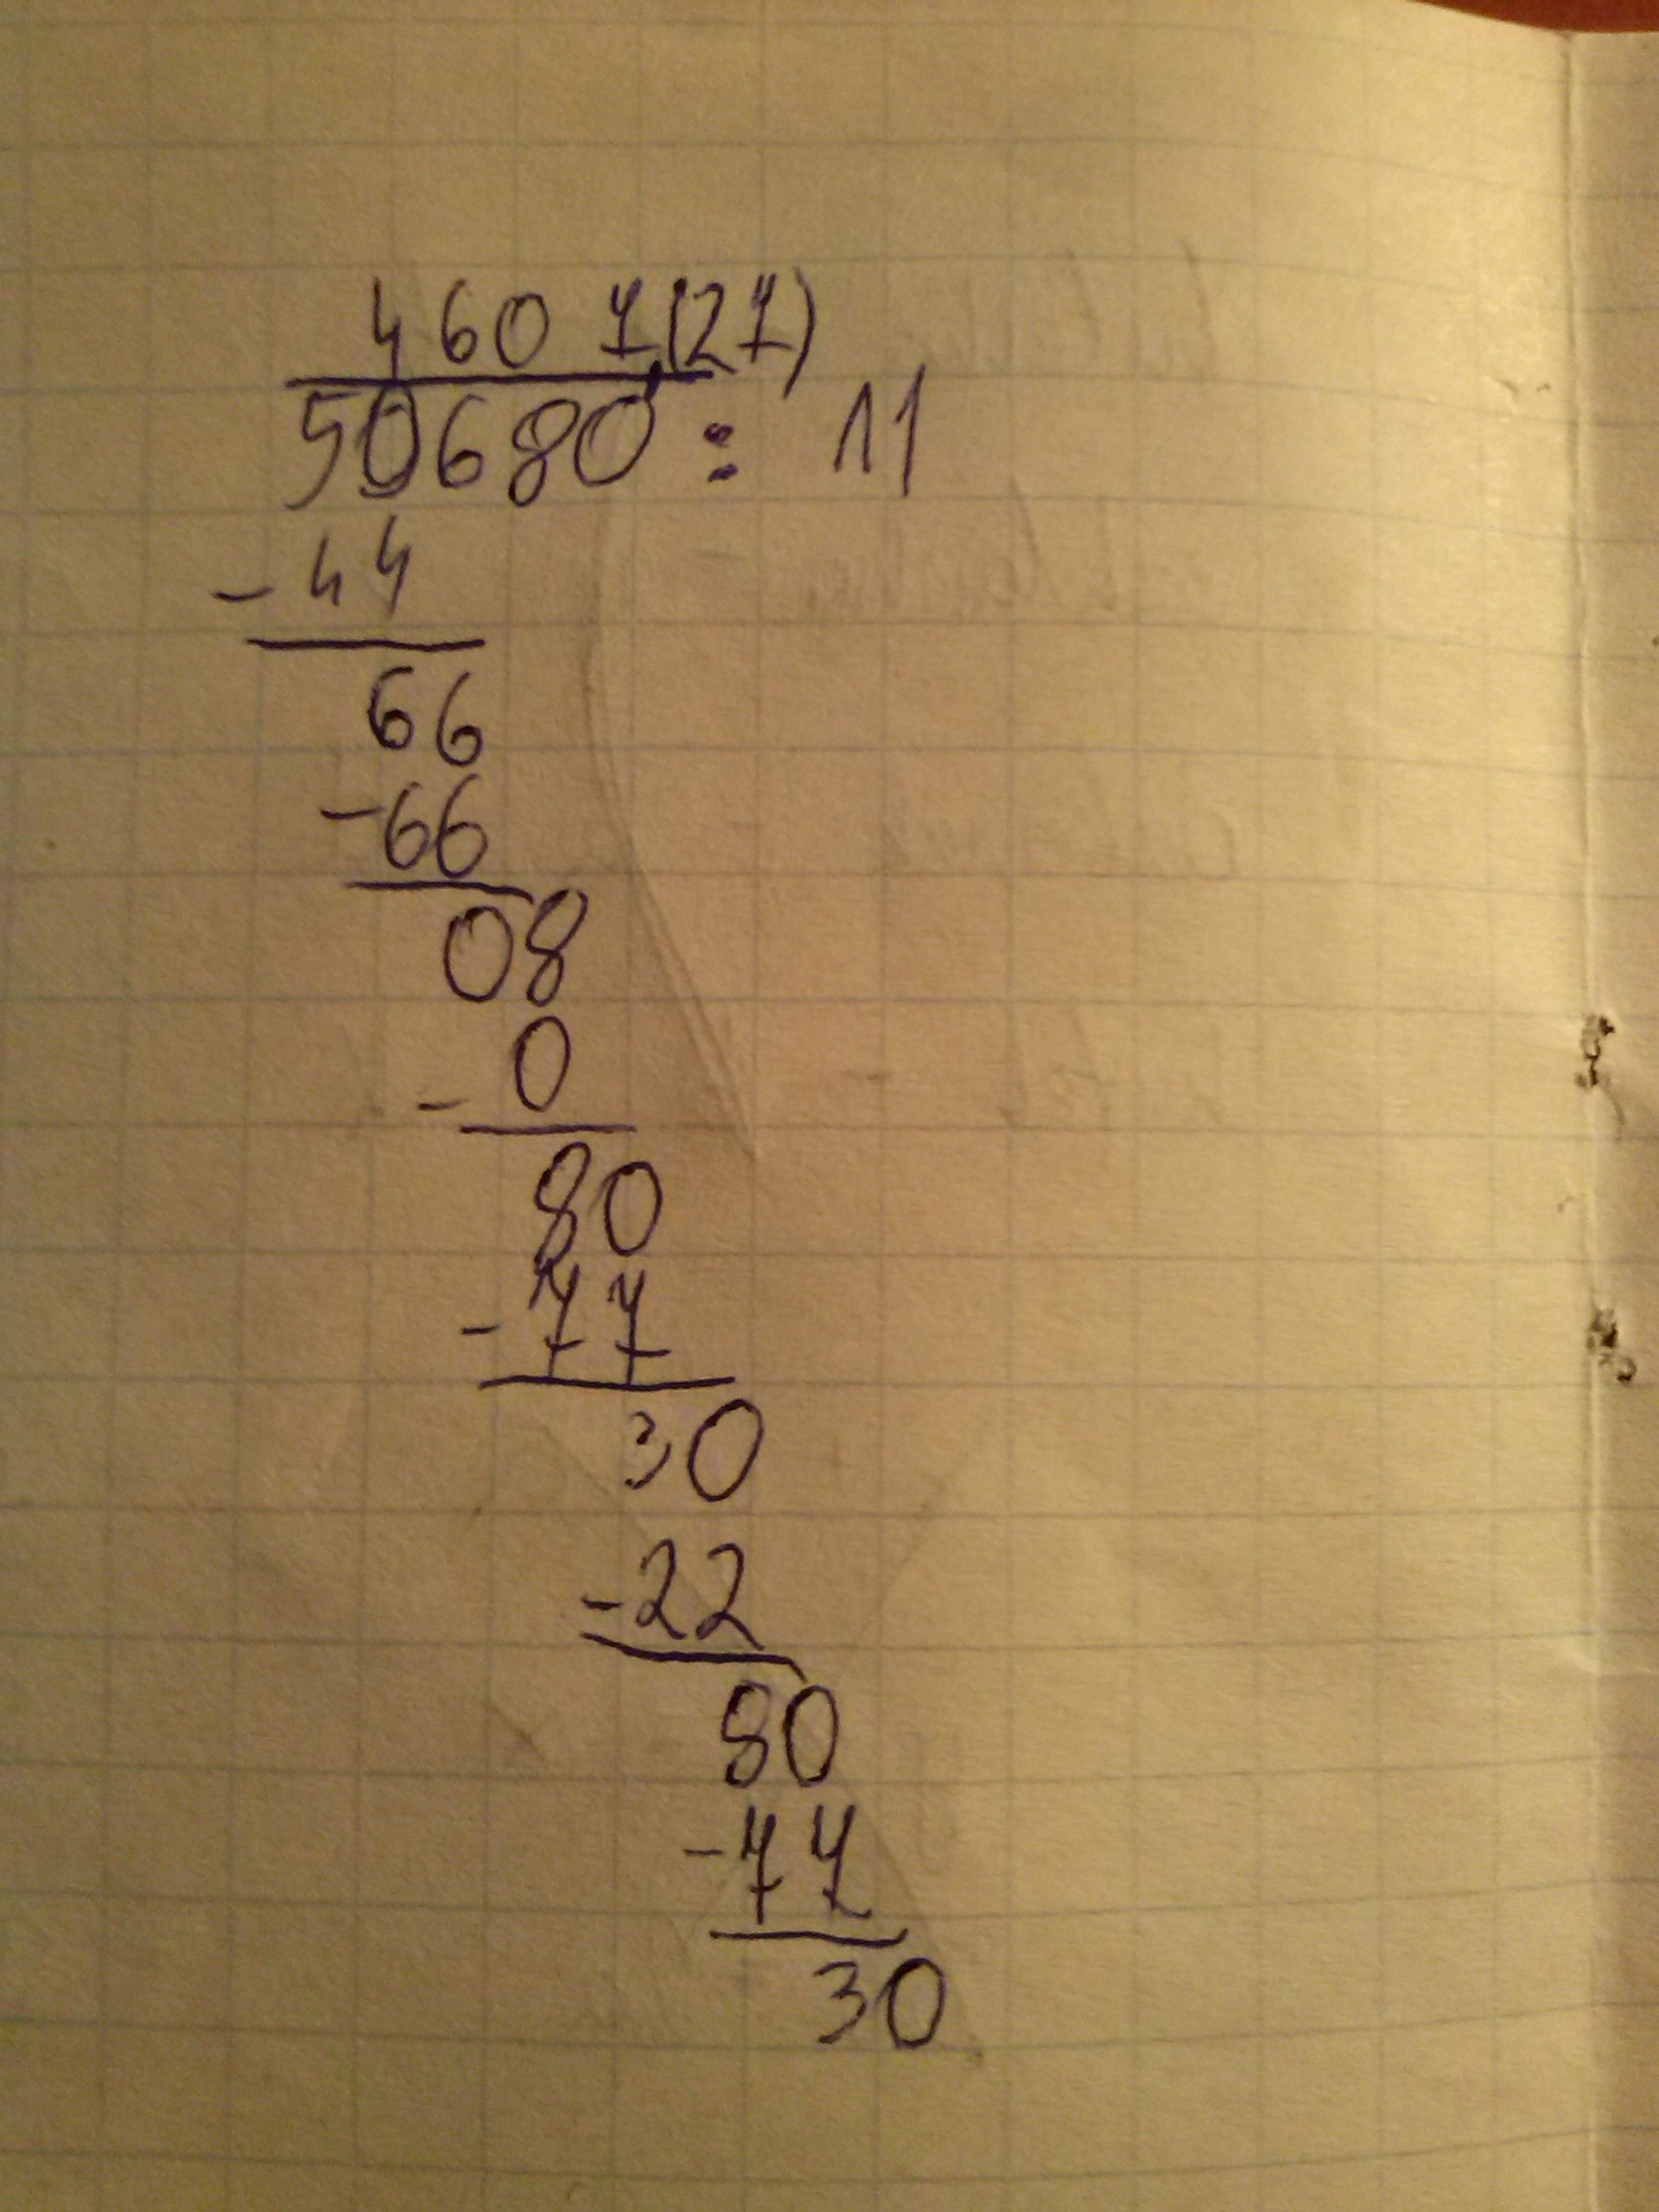 4607,(27)
50680 : 11
- 44
66
- 66
08
- 0
80
- 77
30
- 22
80
- 77
30